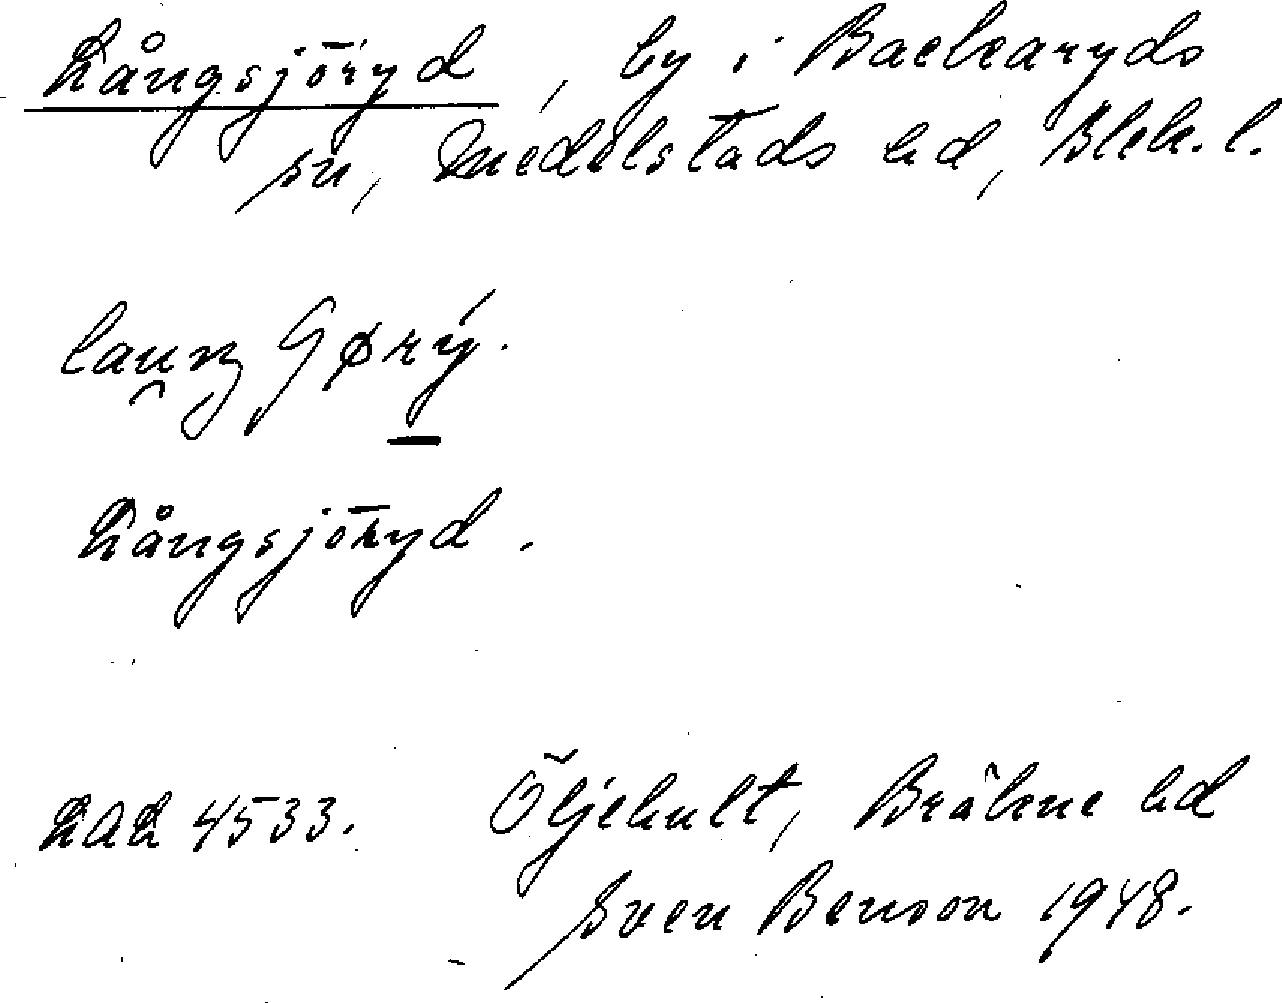 Långsjöryd, by i Backaryds
sn, Medelstads hd, Blek. l.
Långsjöryd.
LAL 4533. Öljehult, Bräkne hd
Sven Benson 1948.